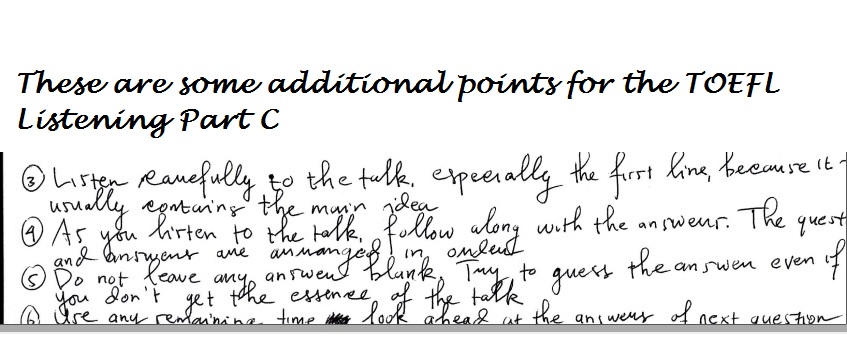 These are some additional points for the TOEFL
Listening Part C
③ Listen carefully to the talk, especially the first line, because it
usually contains the main idea
④ As you listen to the talk, follow along with the answers. The quest
and answers are arranged in order
⑤ Do not leave any answer blank. Try to guess the answer even if
you don't get the essence of the talk
⑥ Use any remaining time look ahead at the answers of next question